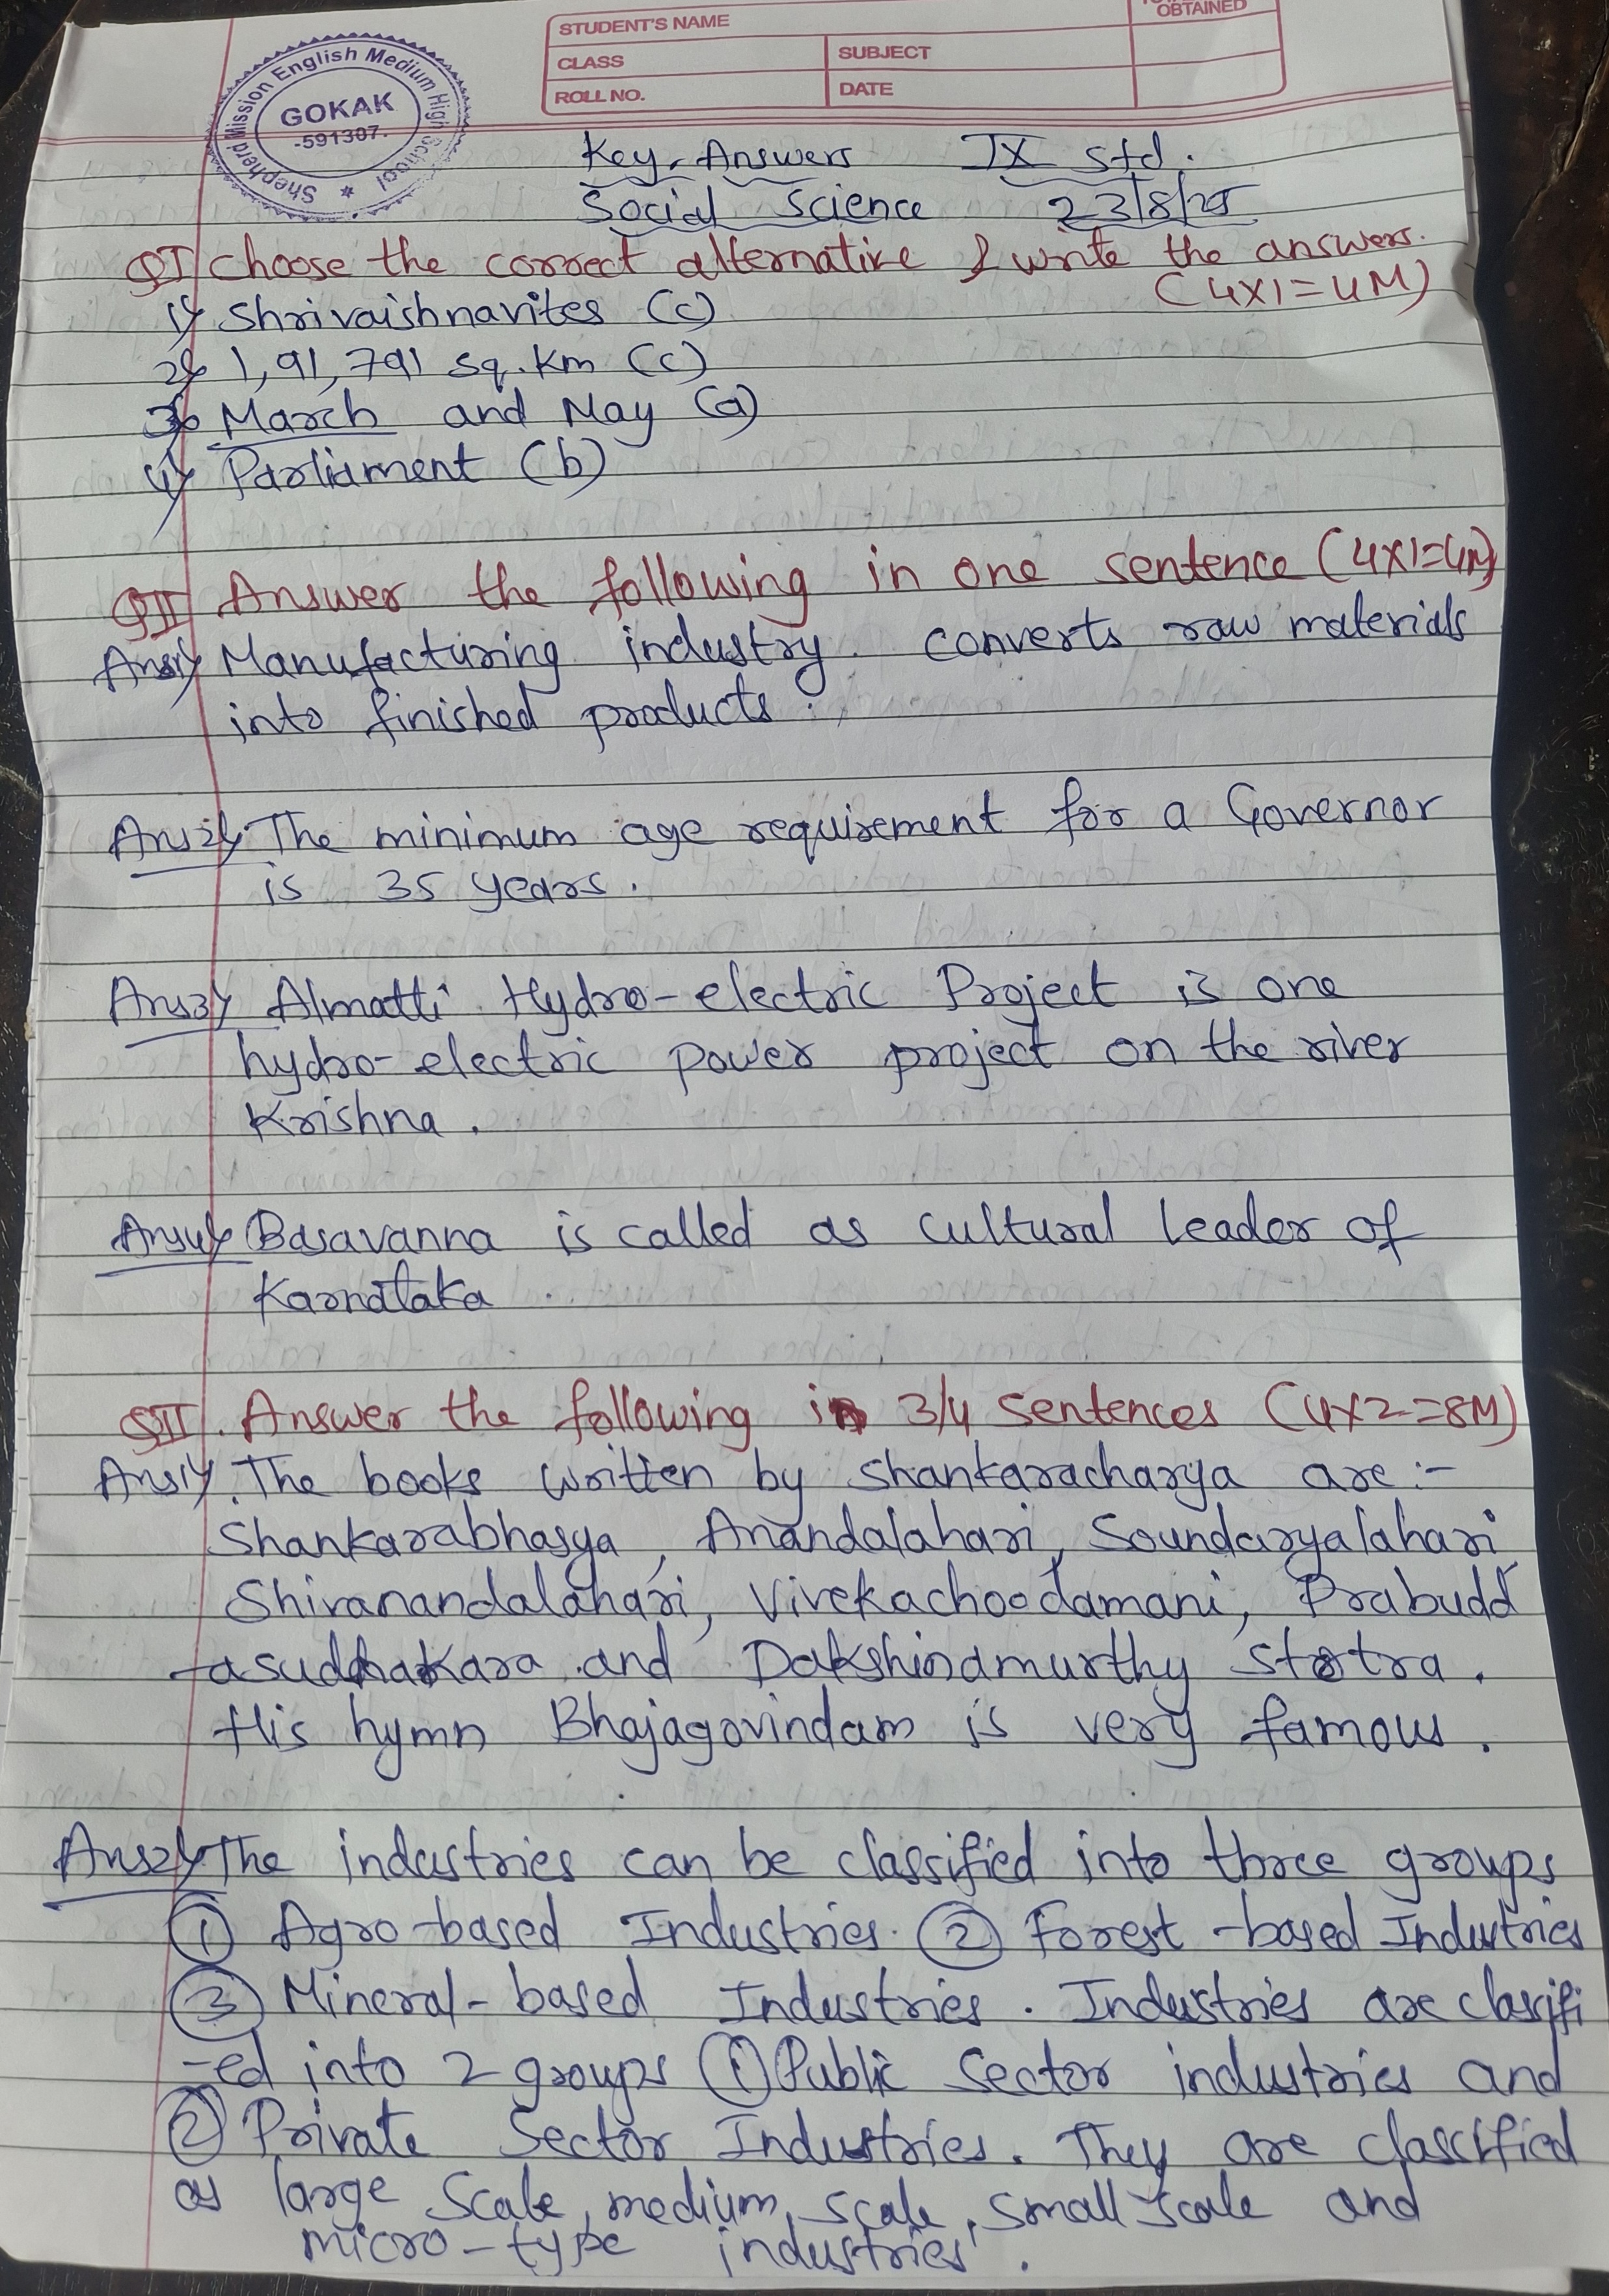 STUDENT'S NAME
OBTAINED
CLASS
SUBJECT
ROLL NO.
DATE
Shepherd Mission English Medium High School *
GOKAK
-591307.
Key Answers IX Std.
Social Science 23/8/25
QI Choose the correct alternative & write the answers.
(4X1=4M)
1) Shrivaishnavites (c)
2) 1,91,791 sq.km (c)
3) March and May (a)
4) Parliament (b)
QII Answer the following in one sentence (4X1=4M)
Ans1) Manufacturing industry converts raw materials
into finished products.
Ans2) The minimum age requirement for a Governor
is 35 years.
Ans3) Almatti Hydro-electric Project is one
hydro-electric power project on the river
Krishna.
Ans4) Basavanna is called as Cultural leader of
Karnataka
QIII. Answer the following in 3/4 sentences (4X2=8M)
Ans1) The books written by Shankaracharya are:-
Shankarabhasya, Anandalahari, Soundaryalahari
Shivanandalahari, Vivekachoodamani, Prabudd
-asudhakara and Dakshinamurthy Stotra.
His hymn Bhajagovindam is very famous.
Ans2) The industries can be classified into three groups
① Agro-based Industries. ② Forest-based Industries
③ Mineral-based Industries. Industries are classifi
-ed into 2 groups ① Public Sector industries and
② Private Sector Industries. They are classified
as large scale, medium scale, small scale and
micro-type industries.